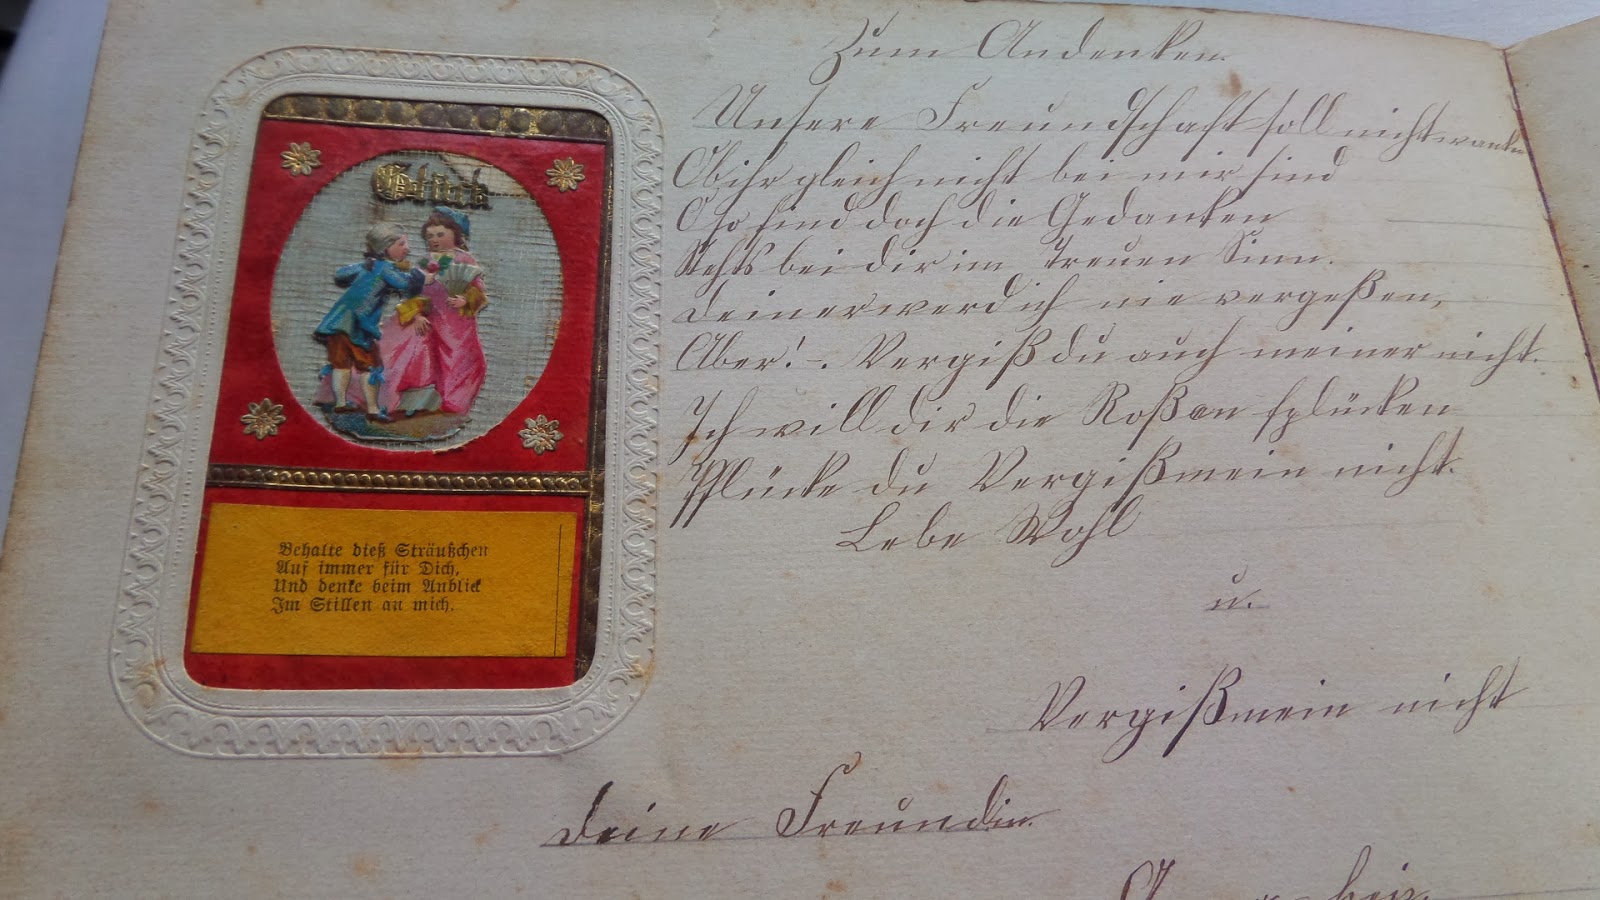 Zum Andenken.
Unsere Freundschaft soll nicht wanken
Ob ihr gleich nicht bei mir sind
O so sind doch die Gedanken
Stehts bei dir im Treuen Sinn.
Deiner werd ich nie vergeßen,
Aber! -. Vergiß du auch meiner nicht.
Ich will dir die Roßen fplücken
Pflücke du Vergißmein nicht.
Lebe Wohl
u.
Vergißmein nicht
Deine Freundin.
Behalte dieß Sträußchen
Auf immer für Dich,
Und denke beim Anblick
Im Stillen an mich.